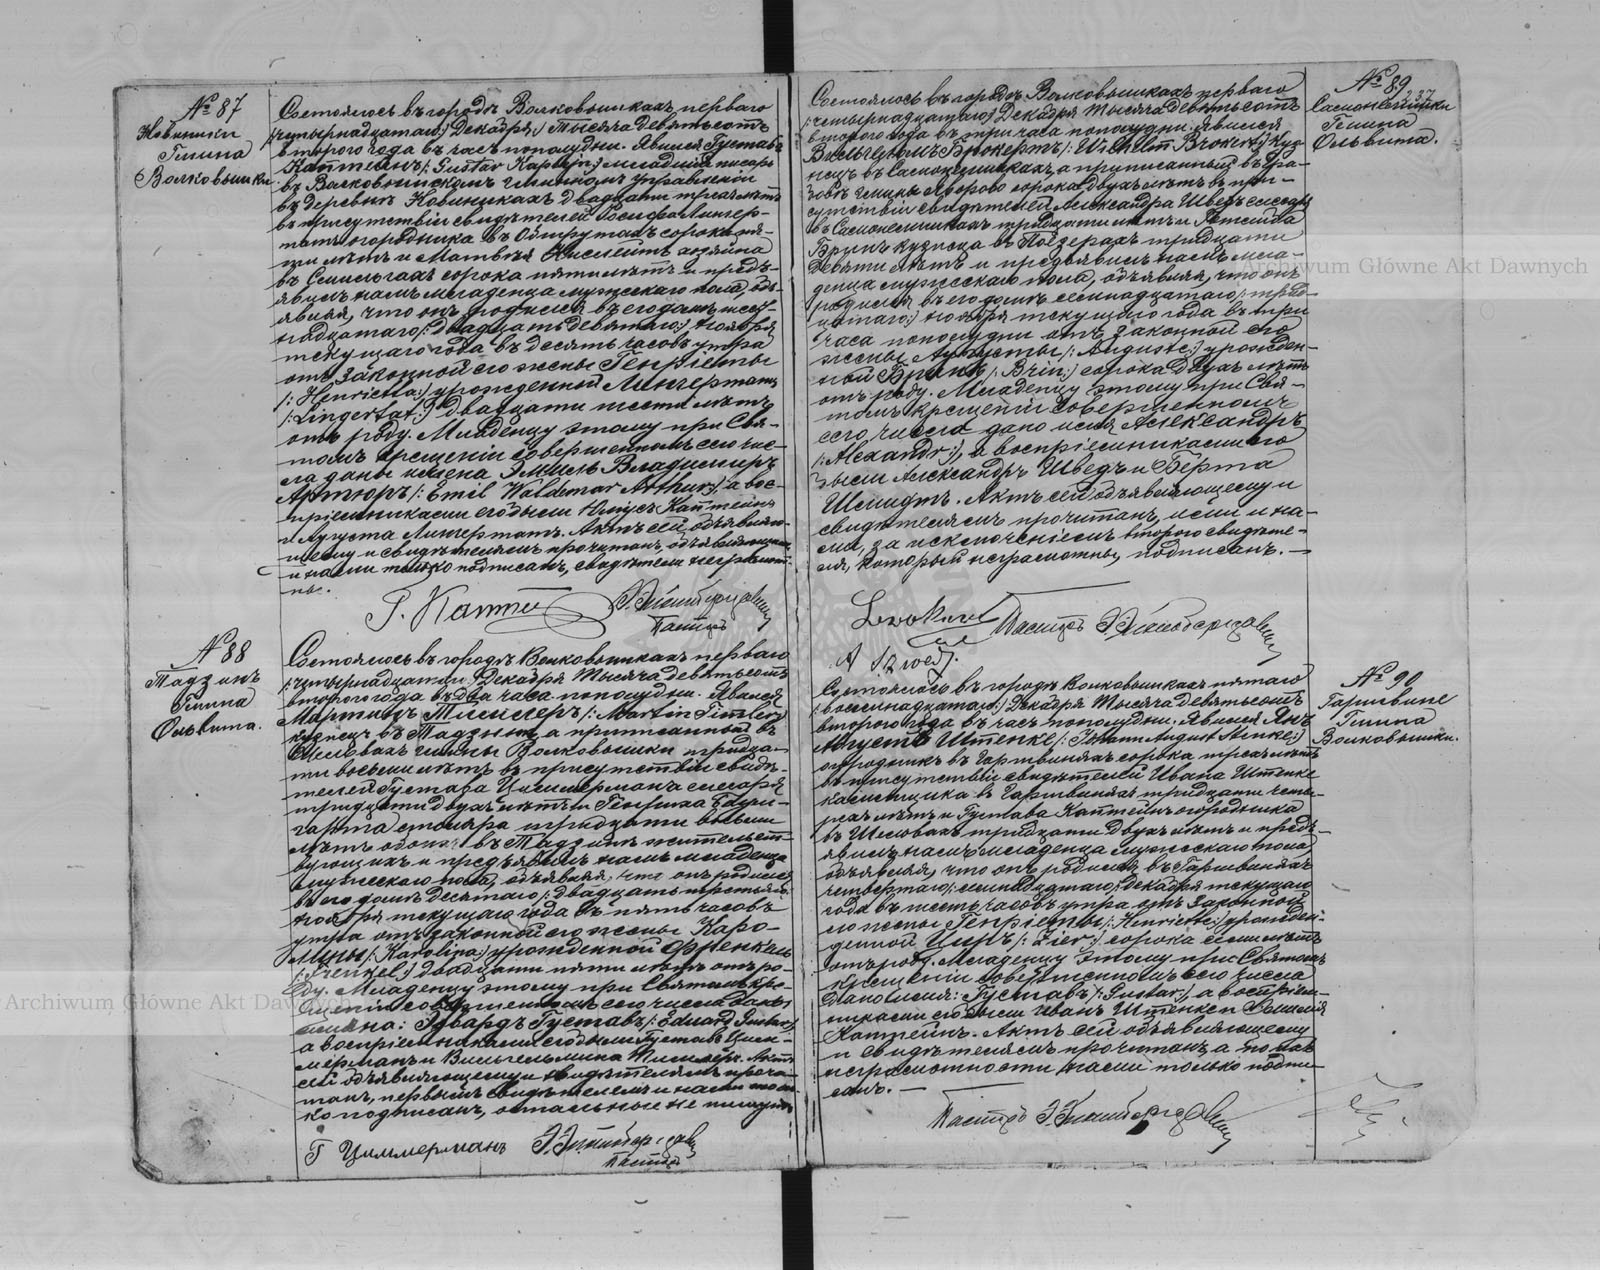 № 87
Новиники
Гмина
Волковышки
Состоялось въ городѣ Волковышкахъ перваго
/:четырнадцатаго:/ Декабря Тысяча девятьсотъ
второго года въ часъ пополудни. Явился Густавъ
Каптеинъ /: Gustav Kaptein:/ младшій писарь
въ Волковышскомъ гминномъ управленіи
въ деревнѣ Новиникахъ двадцати трехъ лѣтъ
въ присутствіи свидѣтелей Іосифа Лингер-
татъ огородника въ сорока пя-
ти лѣтъ и Матвѣя хозяина
въ сорока пяти лѣтъ и предъ-
явилъ намъ младенца мужескаго пола, объ-
являя, что онъ родился въ его домѣ шест-
надцатаго /: двадцать девятаго:/ ноября
текущаго года въ десять часовъ утра
отъ законной его жены Генріеты
/: Henrietta:/ урожденной Лингертатъ
/: Lingertat:/ двадцати шести лѣтъ
отъ роду. Младенцу этому при Свя-
томъ крещеніи совершенномъ сего чис-
ла даны имена Эмиль Владимиръ
Артюръ /: Emil Waldemar Arthur:/, а вос-
пріемниками его были Юлiусъ Каптеинъ
и Августа Лингертатъ. Актъ сей объявляю-
щему и свидѣтелямъ прочитанъ, объявляющимъ
и нами только подписанъ, свидѣтели неграмот-
ны.
Г. Каптеи
Пасторъ
№ 88
Тадзинъ
Гмина
Ольвита.
Состоялось въ городѣ Волковышкахъ перваго
/:четырнадцатаго:/ Декабря Тысяча девятьсотъ
второго года въ два часа пополудни. Явился
Мартинъ Тимлеръ /: Martin Timler:/
кузнецъ въ а приписанный въ
гмины Волковышки тридца-
ти восьми лѣтъ въ присутствіи свидѣ-
телей Густава Циммермана столяра
тридцати двухъ лѣтъ и Генриха Баум-
гарта столяра тридцати восьми
лѣтъ обоихъ въ жительст-
вующихъ и предъявилъ намъ младенца
мужескаго пола, объявляя, что онъ родился
въ его домѣ десятаго /: двадцать третьяго:/
ноября текущаго года въ пять часовъ
утра отъ законной его жены Каро-
лины /: Karolina:/ урожденной Френкель
/: Frenkel:/ двадцати пяти лѣтъ отъ ро-
ду. Младенцу этому при Святомъ кре-
щеніи совершенномъ сего числа даны
имена: Эдвардъ Густавъ /: Eduard Gustav:/
а воспріемниками его были Густавъ Цим-
мерманъ и Вильгельмина Тимлеръ. Актъ
сей объявляющему и свидѣтелямъ прочи-
танъ, первымъ свидѣтелемъ и нами толь-
ко подписанъ, остальные не пишутъ
Г Циммерманъ
Пасторъ
№ 89
237
Гмина
Ольвита.
Состоялось въ городѣ Волковышкахъ перваго
/:четырнадцатаго:/ Декабря Тысяча девятьсотъ
второго года въ три часа пополудни. Явился
Вильгельмъ Брокертъ /: Wilhelm Brokert:/ куз-
нецъ въ а приписанный въ
гмины Яворово сорока двухъ лѣтъ въ при-
сутствіи свидѣтелей Александра Шведъ слесаря
въ тридцати лѣтъ и
Бринъ кузнеца въ Поезерахъ тридцати
девяти лѣтъ и предъявилъ намъ мла-
денца мужескаго пола, объявляя, что онъ
родился въ его домѣ семнадцатаго /: трид-
цатаго:/ ноября текущаго года въ три
часа пополудни отъ законной его
жены Августы /: Auguste:/ урожден-
ной Бринъ /: Brin:/ сорока двухъ лѣтъ
отъ роду. Младенцу этому при Свя-
томъ крещеніи совершенномъ
сего числа дано имя Александръ
/: Alexandr:/, а воспріемниками его
были Александръ Шведъ и Берта
Шмидтъ. Актъ сей объявляющему и
свидѣтелямъ прочитанъ, ими и на-
ми, за исключеніемъ второго свидѣте-
ля, который неграмотны, подписанъ. —
Пасторъ
A Szwed.
№ 90
Гаршвине
Гмина
Волковышки.
Состоялось въ городѣ Волковышкахъ пятаго
/:восемнадцатаго:/ Декабря Тысяча девятьсотъ
второго года въ часъ пополудни. Явился Янъ
Августъ Штенке /: Johann August Stinke:/
огородникъ въ Гаршвиняхъ сорока трехъ лѣтъ
въ присутствіи свидѣтелей Ивана Штенке
каменщика въ Гаршвиняхъ тридцати четы-
рехъ лѣтъ и Густава Каптеинъ огородника
въ Шиловахъ тридцати двухъ лѣтъ и предъ-
явилъ намъ младенца мужескаго пола
объявляя, что онъ родился въ Гаршвиняхъ
четвертаго /: семнадцатаго:/ Декабря текущаго
года въ шесть часовъ утра отъ законной
его жены Генріеты /: Henriette:/ урожден-
денной Циръ /: Zier:/ сорока семи лѣтъ
отъ роду. Младенцу этому при Святомъ
крещеніи совершенномъ сего числа
дано имя: Густавъ /: Gustav:/, а воспріем-
никами его были Иванъ Штенке и
Каптеинъ. Актъ сей объявляющему
и свидѣтелямъ прочитанъ, а по ихъ
неграмотности нами только подпи-
санъ. —
Пасторъ
Archiwum Główne Akt Dawnych
Archiwum Główne Akt Dawnych